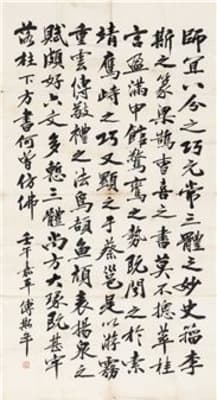 師宜八分之巧元常三體之妙史籀李
斯之篆梁鵠曹喜之書莫不摠萃桂
宮盈滿甲館鶩鸞之勢既聞之於索
靖鷹峙之巧又顯之于蔡邕是以霧
重雲傳敬禮之法馬頡魚頏表揚泉之
賦頗好六文多慙三體尚方大篆既甚牢
落柱下方書何曾仿佛
壬午嘉平 傅斯年